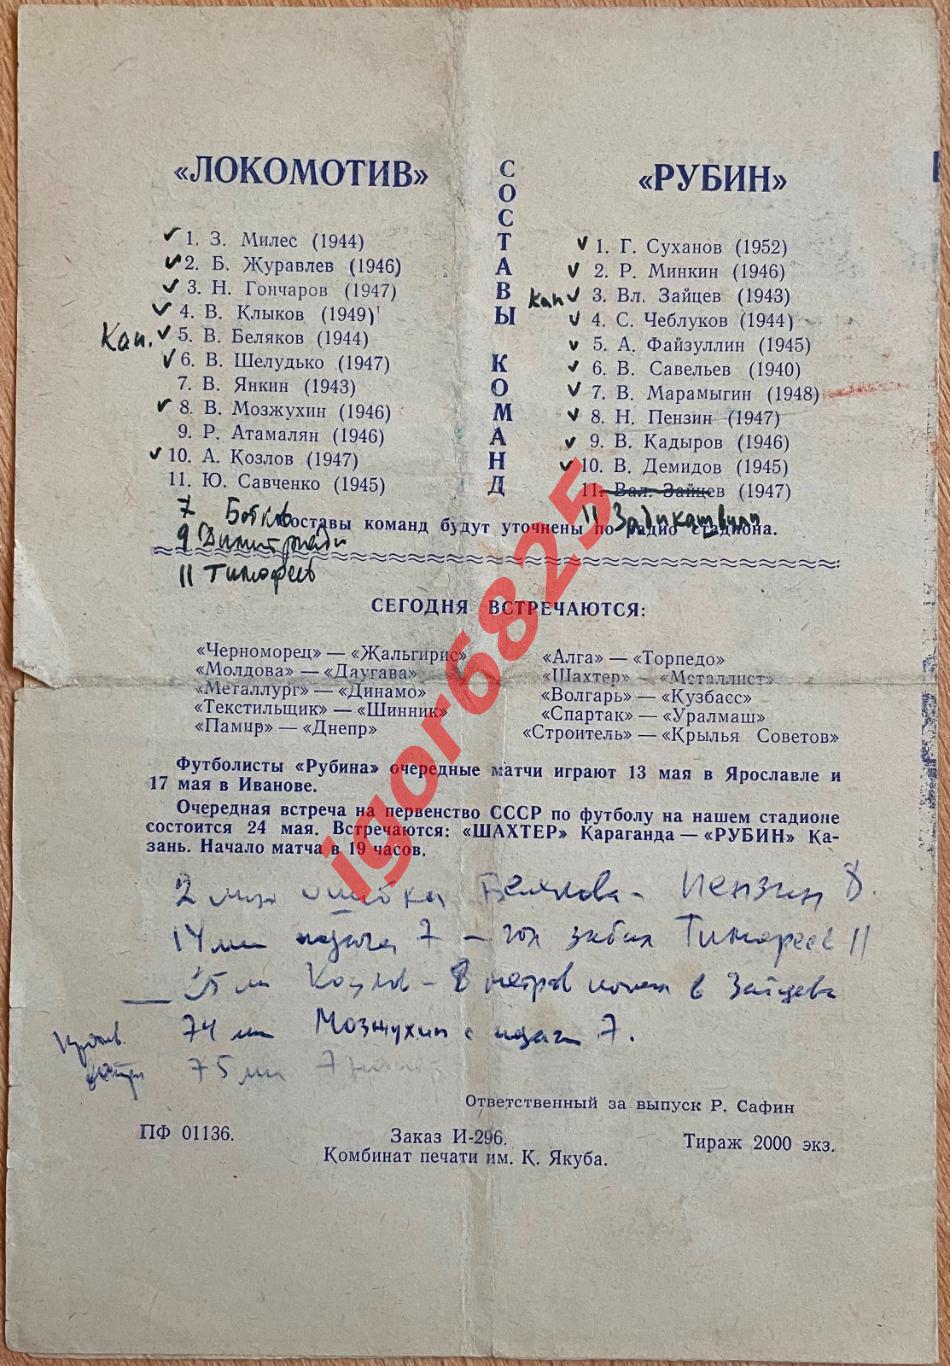 «ЛОКОМОТИВ»
✓ 1. З. Милес (1944)
✓ 2. Б. Журавлев (1946)
✓ 3. Н. Гончаров (1947)
✓ 4. В. Клыков (1949)
Кап. ✓ 5. В. Беляков (1944)
✓ 6. В. Шелудько (1947)
7. В. Янкин (1943)
✓ 8. В. Мозжухин (1946)
9. Р. Атамалян (1946)
✓ 10. А. Козлов (1947)
11. Ю. Савченко (1945)
СОСТАВЫ КОМАНД
«РУБИН»
✓ 1. Г. Суханов (1952)
✓ 2. Р. Минкин (1946)
Кап ✓ 3. Вл. Зайцев (1943)
✓ 4. С. Чеблуков (1944)
✓ 5. А. Файзуллин (1945)
✓ 6. В. Савельев (1940)
✓ 7. В. Марамыгин (1948)
✓ 8. Н. Пензин (1947)
✓ 9. В. Кадыров (1946)
✓ 10. В. Демидов (1945)
11. Вал. Зайцев (1947)
7
11 Задикашвили
Составы команд будут уточнены по радио стадиона.
9
11 Тимофеев
СЕГОДНЯ ВСТРЕЧАЮТСЯ:
«Черноморец» — «Жальгирис»
«Молдова» — «Даугава»
«Металлург» — «Динамо»
«Текстильщик» — «Шинник»
«Памир» — «Днепр»
«Алга» — «Торпедо»
«Шахтер» — «Металлист»
«Волгарь» — «Кузбасс»
«Спартак» — «Уралмаш»
«Строитель» — «Крылья Советов»
Футболисты «Рубина» очередные матчи играют 13 мая в Ярославле и
17 мая в Иванове.
Очередная встреча на первенство СССР по футболу на нашем стадионе
состоится 24 мая. Встречаются: «ШАХТЕР» Караганда — «РУБИН» Ка-
зань. Начало матча в 19 часов.
2 мин ошибка Белякова - Пензин 8.
14 мин подача 7 - гол забил Тимофеев 11
Козлов - 8 метров в Зайцева
74 мин Мозжухин с подачи 7.
75 мин 7
Ответственный за выпуск Р. Сафин
ПФ 01136.
Заказ И-296.
Тираж 2000 экз.
Комбинат печати им. К. Якуба.
igor6825